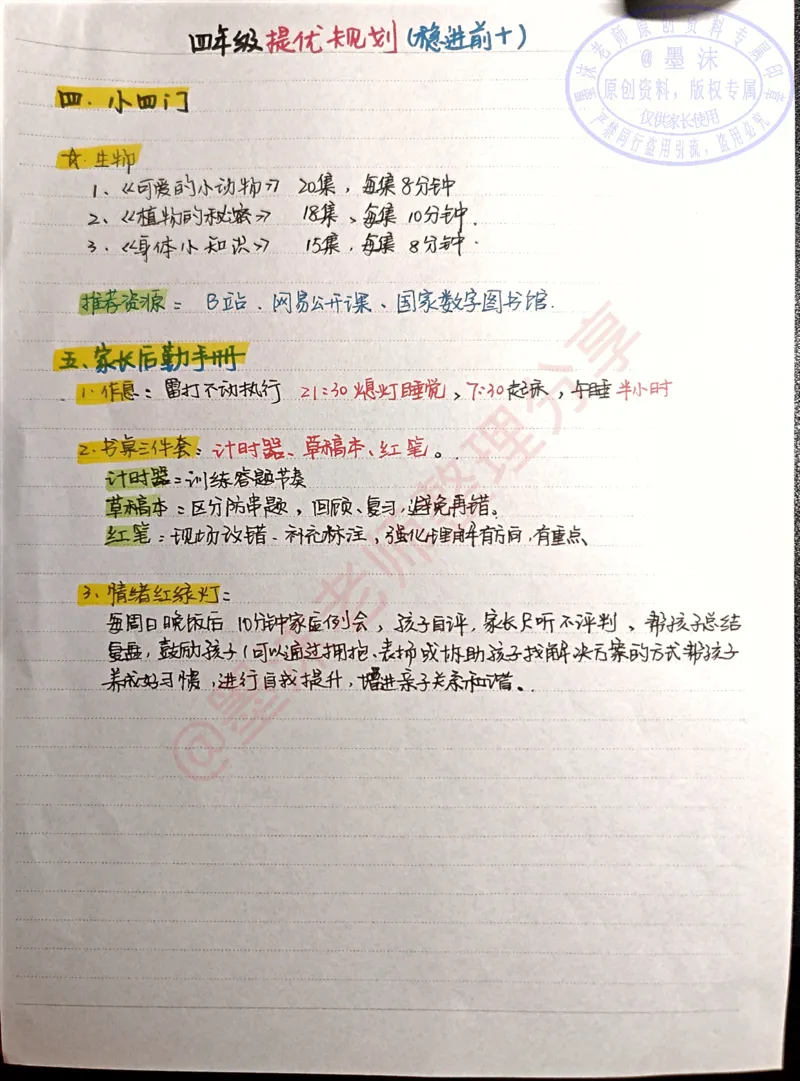 四年级提优规划(稳进前十)
墨沫老师原创资料专属印章
@墨沫
原创资料,版权专属
仅供家长使用
严禁同行盗用引流,盗用必究
四、小四门
☆·生物
1、《可爱的小动物》 20集,每集8分钟
2、《植物的秘密》 18集、每集10分钟.
3.《身体小知识》 15集,每集8分钟.
推荐资源: B站、网易公开课、国家数字图书馆.
五、家长后勤手册
1.作息:雷打不动执行 21:30熄灯睡觉、7:30起床,午睡半小时
2.书桌三件套:计时器、草稿本、红笔。
计时器:训练答题节奏
草稿本:区分防串题,回顾、复习,避免再错。
红笔:现场改错、补充标注,强化理解有方向,有重点、
3.情绪红绿灯:
每周日晚饭后10分钟家庭例会,孩子自评,家长只听不评判、帮孩子总结
复盘,鼓励孩子(可以通过拥抱、表扬或协助孩子找解决方案的方式帮孩子
养成好习惯,进行自我提升,增进亲子关系和谐。
@墨沫老师整理分享